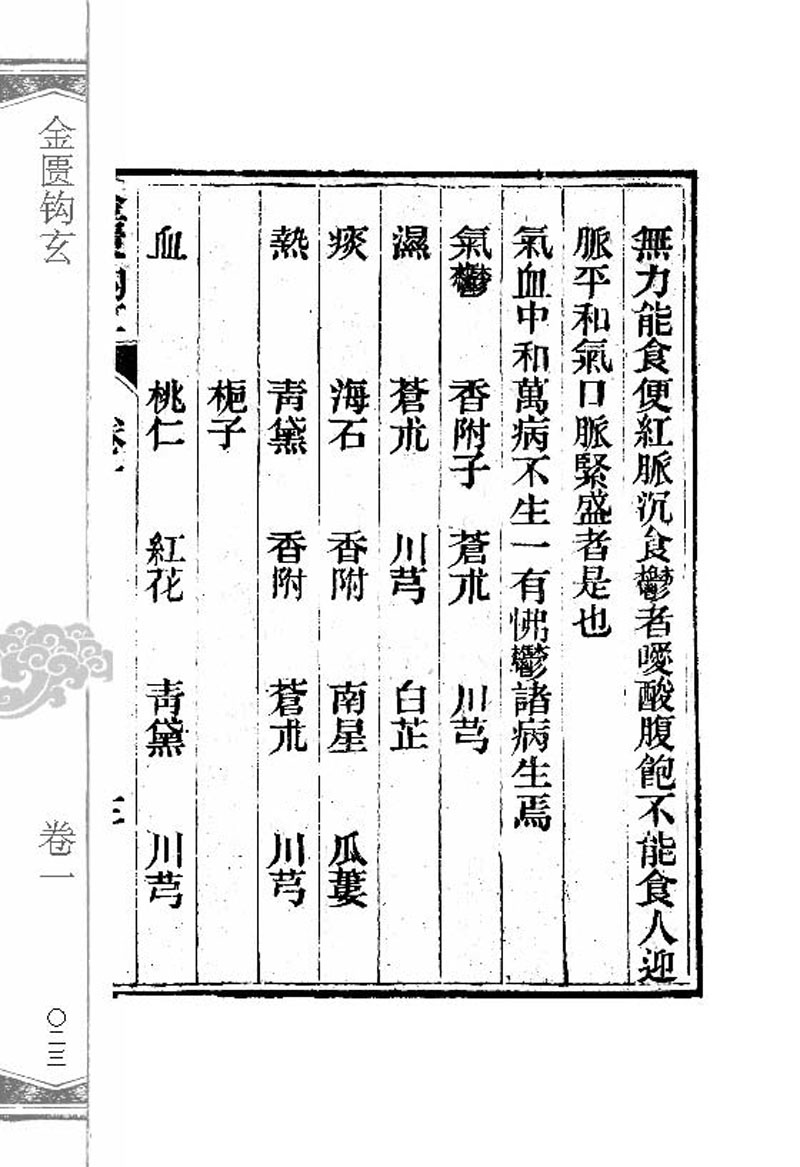 無力能食便紅脈沉食鬱者噯酸腹飽不能食人迎
脈平和氣口脈緊盛者是也
氣血中和萬病不生一有怫鬱諸病生焉
氣鬱 香附子 蒼朮 川芎
濕 蒼朮 川芎 白芷
痰 海石 香附 南星 瓜蔞
熱 青黛 香附 蒼朮 川芎
梔子
血 桃仁 紅花 青黛 川芎
三
金匮钩玄
卷一
〇二三